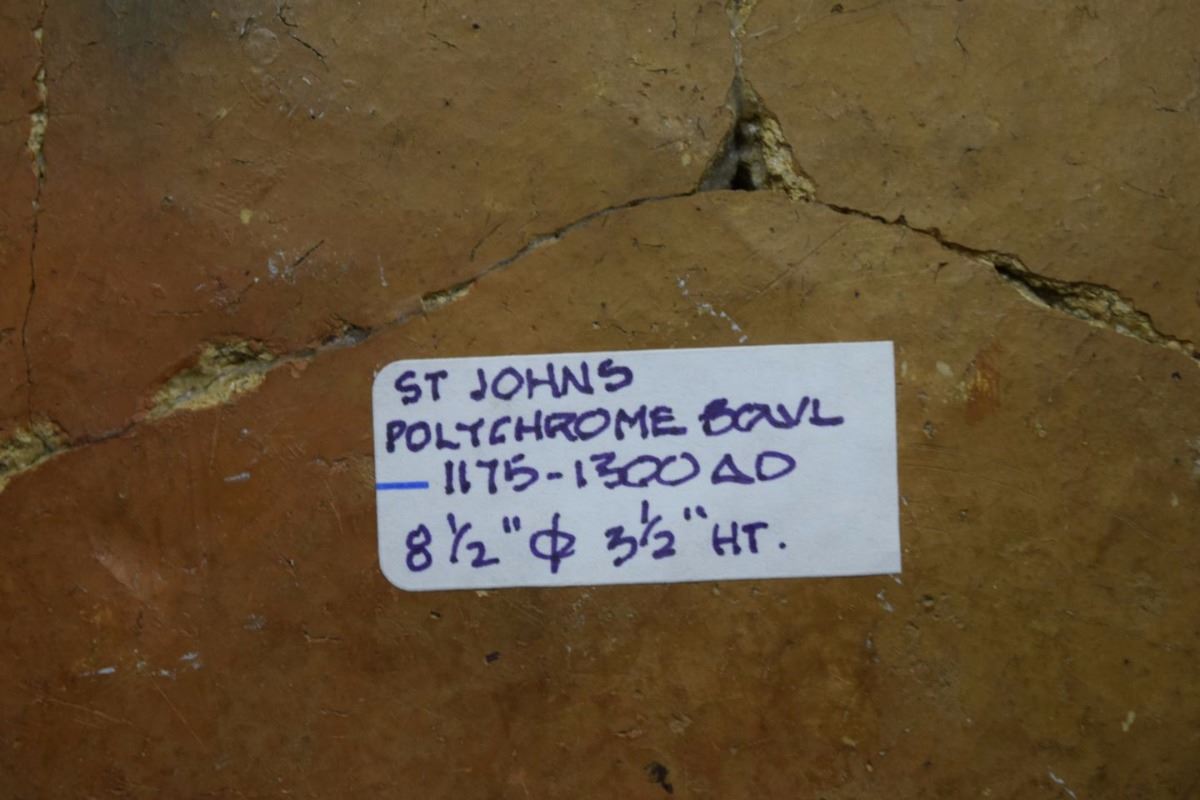 ST JOHNS
POLYCHROME BOWL
1175-1300 AD
8 1/2" ⌀ 3 1/2" HT.